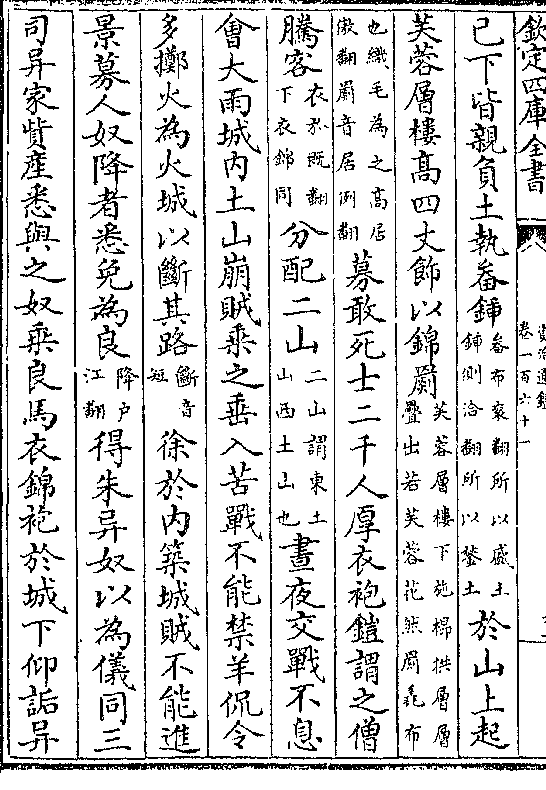 欽定四庫全書
資治通鑑
卷一百六十一
已下皆親負土執畚鍤畚布衮翻所以盛土鍤側洽翻所以鍫土於山上起
芙蓉層樓高四丈飾以錦罽芙蓉層樓下施拱層層疊出若芙蓉花然罽毳布
也織毛為之高居傲翻罽音居例翻募敢死士二千人厚衣袍鎧謂之僧
騰客衣於既翻下衣錦同分配二山二山謂東土山西土山也晝夜交戰不息
會大雨城内土山崩賊乗之垂入苦戰不能禁羊侃令
多擲火為火城以斷其路斷音短徐於内築城賊不能進
景募人奴降者悉免為良降户江翻得朱异奴以為儀同三
司异家貲產悉與之奴乗良馬衣錦袍於城下仰詬异